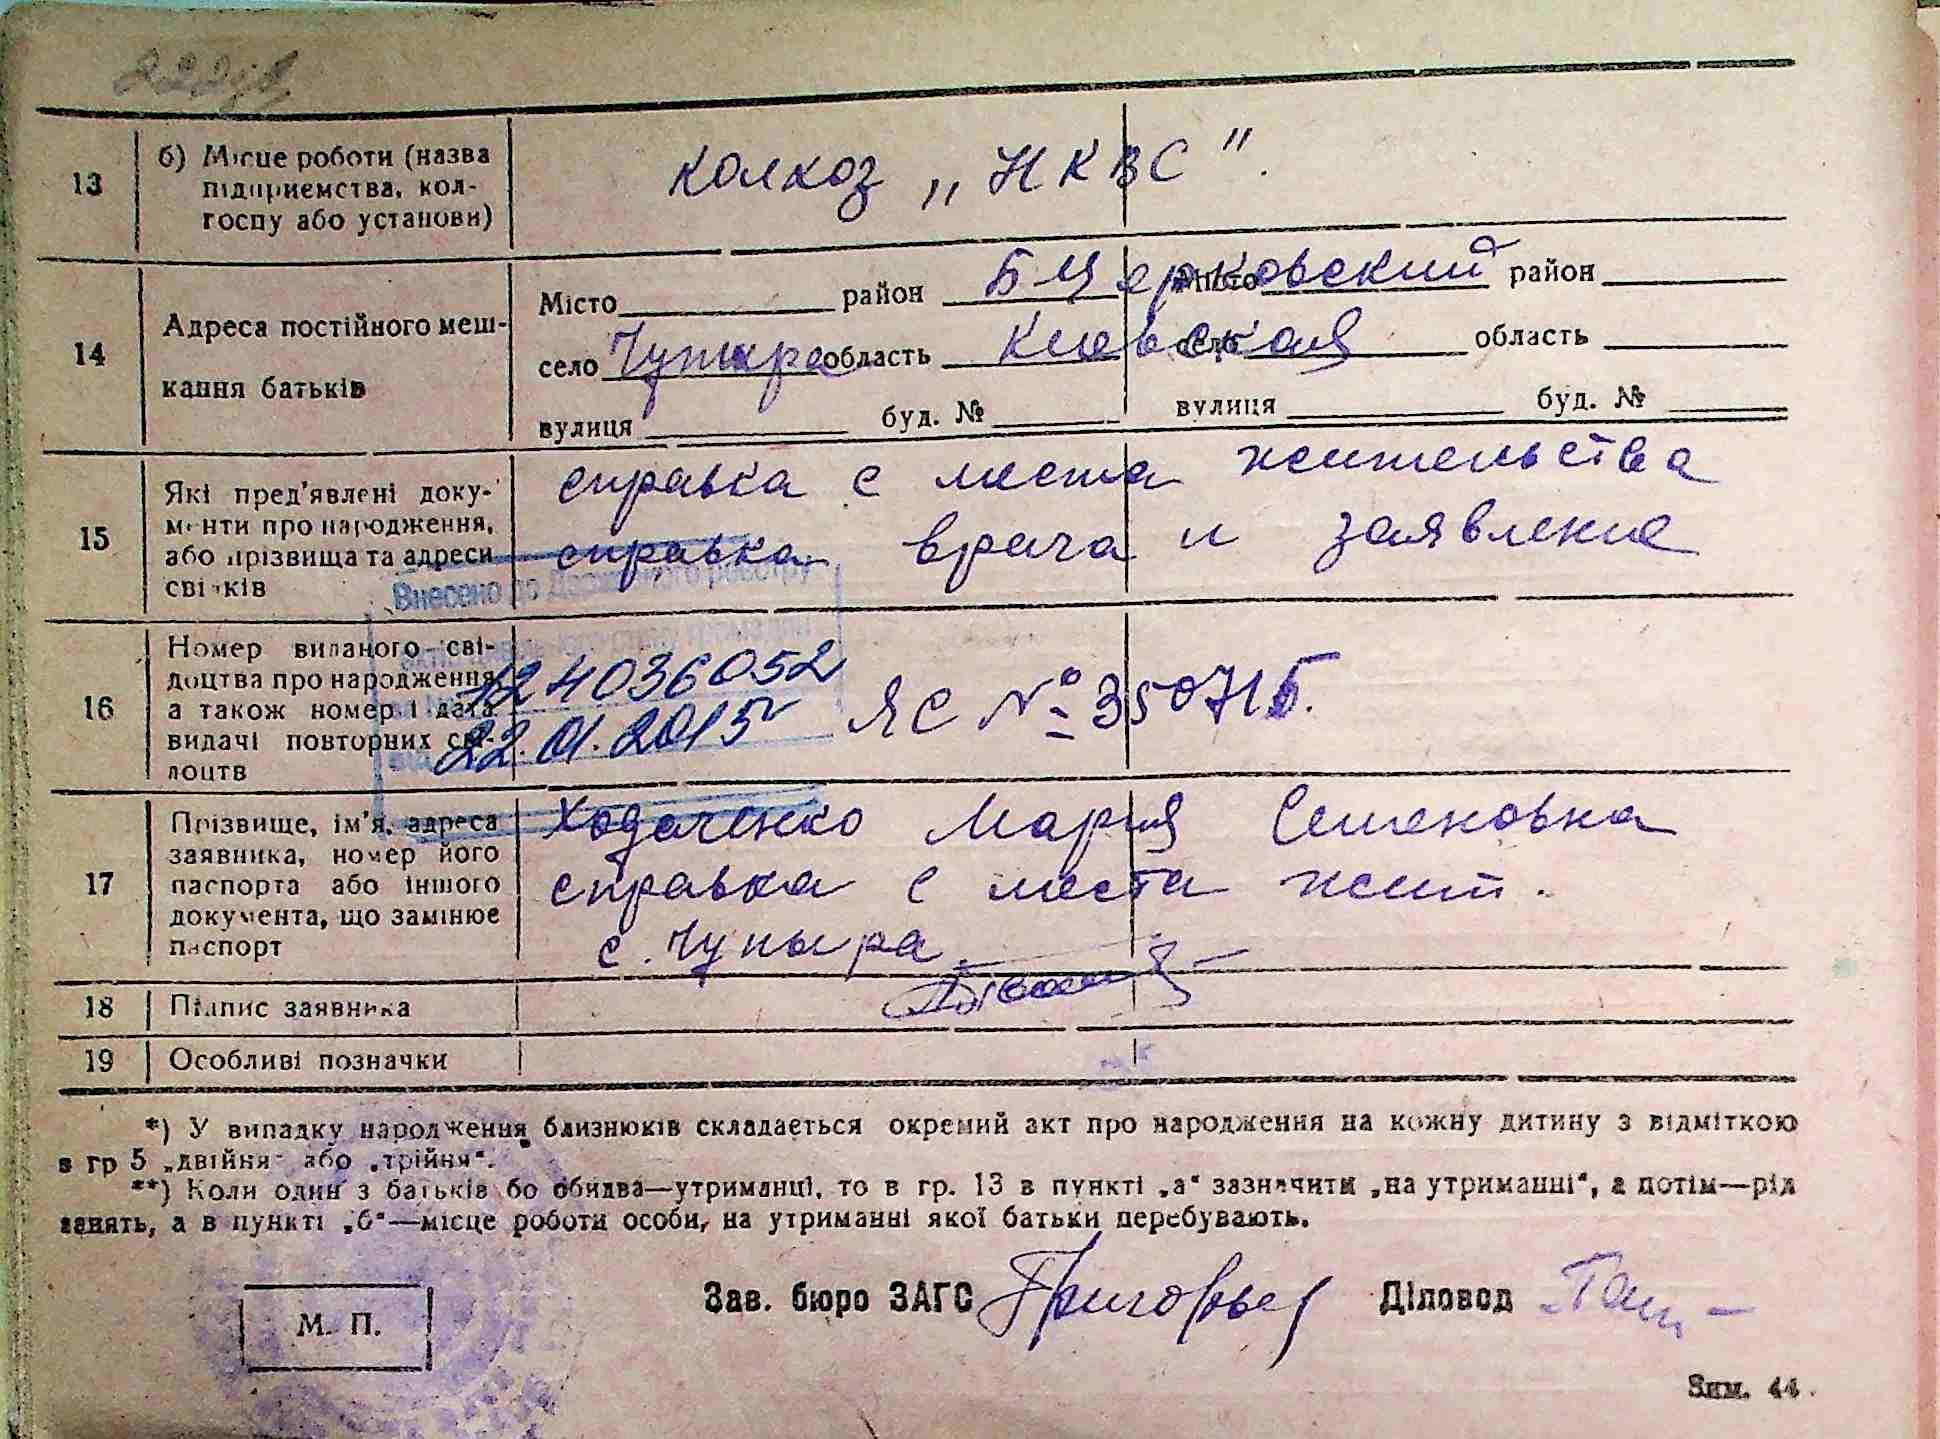 13 б) Місце роботи (назва
підприємства, кол-
госпу або установи)
колхоз „НКВС".
14 Адреса постійного меш-
кання батьків
Місто район Б Церковский Місто район
село Чупыра область Киевская село область
вулиця буд. № вулиця буд. №
15 Які пред'явлені доку-
менти про народження,
або прізвища та адреси
свідків
справка с места жительства
справка врача и заявление
Внесено до Державного реєстру
16 Номер виданого сві-
доцтва про народження
а також номер і дата
видачі повторних сві-
доцтв
124036052
22.01.2015
ЯС № 350715.
17 Прізвище, ім'я, адреса
заявника, номер його
паспорта або іншого
документа, що замінює
паспорт
Ходаченко Мария Семеновка
справка с места жит.
с. Чупыра
18 Підпис заявника
19 Особливі позначки
*) У випадку народження близнюків складається окремий акт про народження на кожну дитину з відміткою
в гр 5 „двійня" або „трійня".
**) Коли один з батьків бо обидва—утриманці, то в гр. 13 в пункті „а" зазначити „на утриманні", а потім—рід
занять, а в пункті „б"—місце роботи особи, на утриманні якої батьки перебувають.
М. П.
Зав. бюро ЗАГС Григорьев Діловод
Зим. 44.